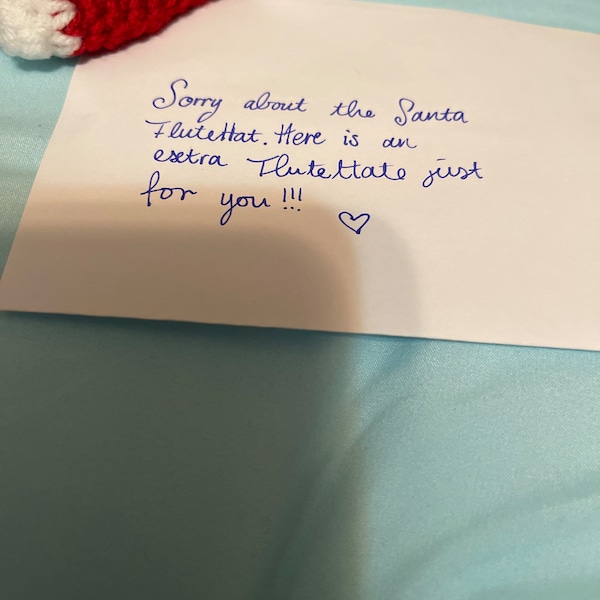 Sorry about the Santa
FluteHat. Here is an
esetra FluteHate just
for you!!!